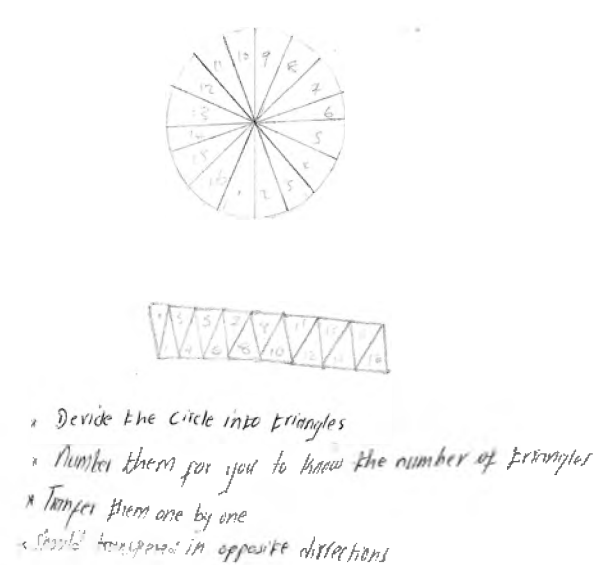 11 10 9 8
12 7
13 6
14 5
15 4
16 1 2 3
1 3 5 7 9 11 13
4 6 8 10 12 14 16
* Devide the circle into triangles
* Number them for you to know the number of triangles
* Tranfer them one by one
should in opposite directions